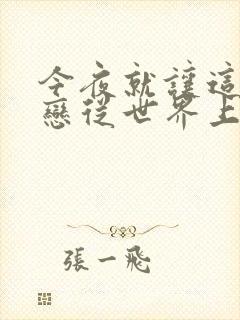 今夜就讓這
戀從世界上
張一飛